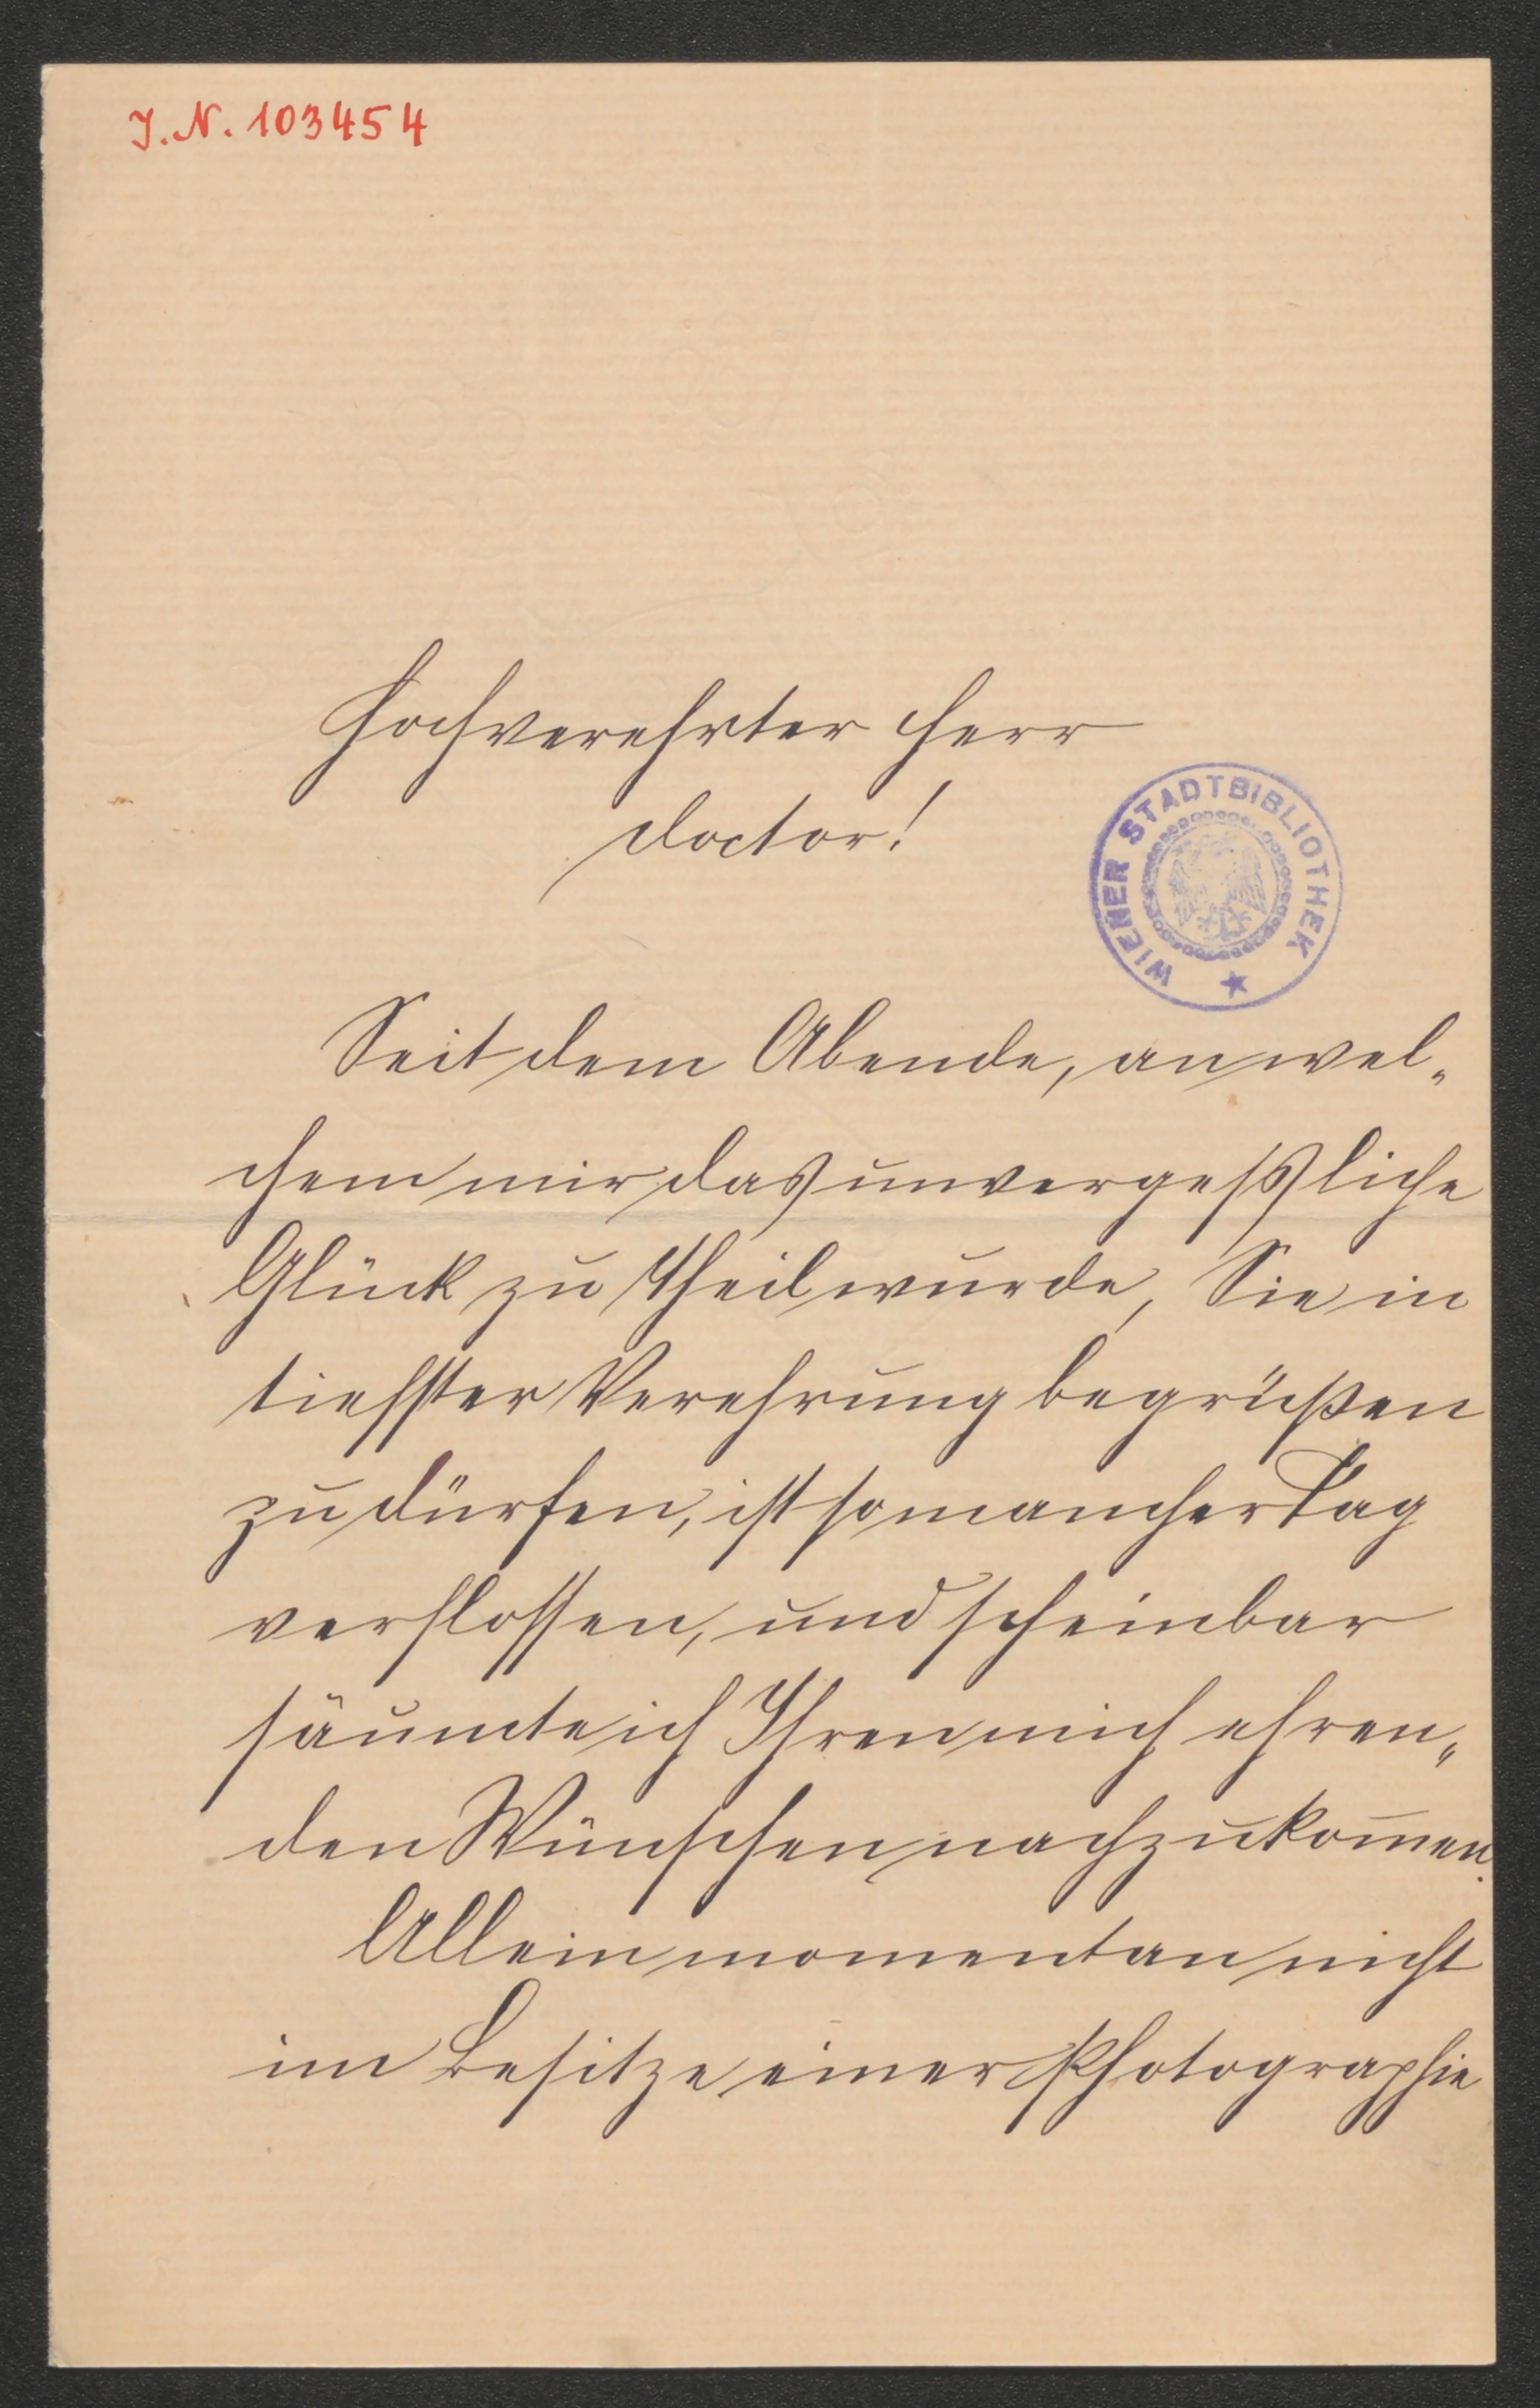 J. N. 103454
Hochverehrter Herr
Doctor!
WIENER STADTBIBLIOTHEK
Seit dem Abende, an wel„
chem mir das unvergeßliche
Glück zu Theil wurde, Sie in
tiefster Verehrung begrüßen
zu dürfen, ist so mancher Tag
verflossen, und scheinbar
säumte ich Ihren mich ehren„
den Wünschen nachzukom̅en.
Allein momentan nicht
im Besitze einer Photographie